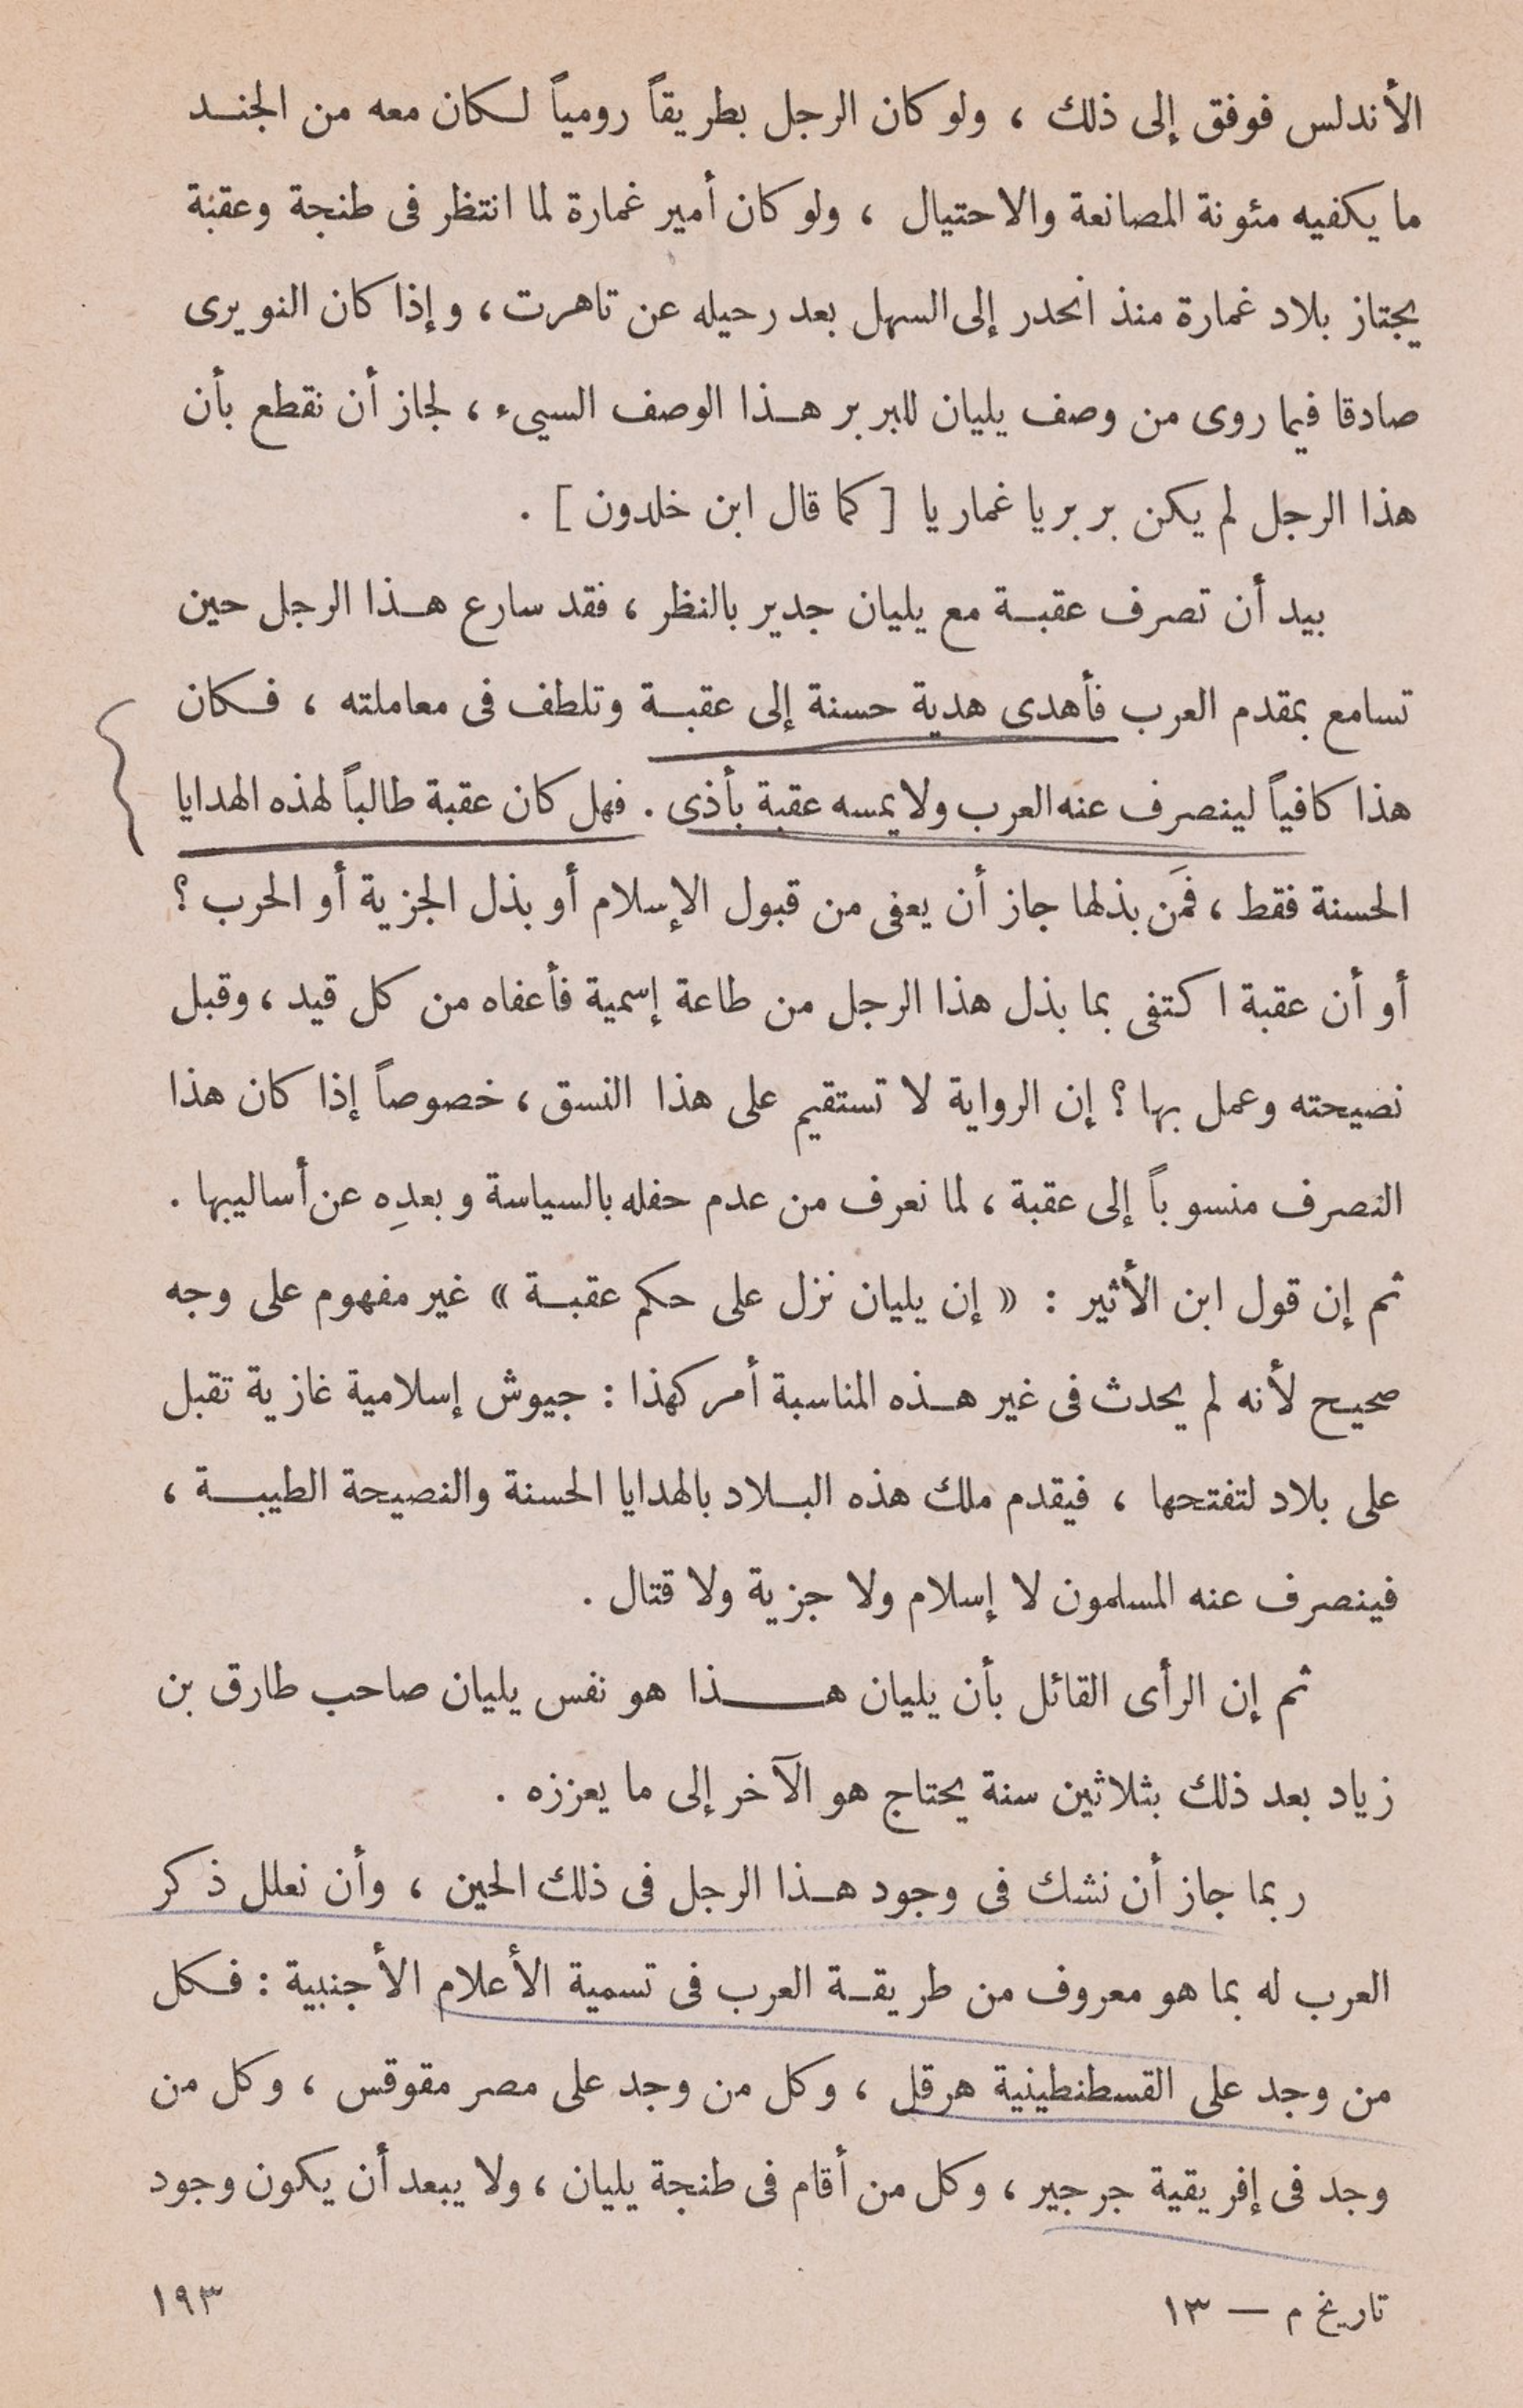 الأندلس فوفق إلى ذلك ، ولو كان الرجل بطريقاً رومياً لـكان معه من الجنـد
ما يكفيه مئونة المصانعة والاحتيال ، ولو كان أمير غمارة لما انتظر فى طنجة وعقبة
يجتاز بلاد غمارة منذ انحدر إلى السهل بعد رحيله عن تاهرت ، وإذا كان النويرى
صادقا فيما روى من وصف يليان للبربر هـذا الوصف السيىء ، لجاز أن نقطع بأن
هذا الرجل لم يكن بربريا غماريا [ كما قال ابن خلدون ] .
بيد أن تصرف عقبـة مع يليان جدير بالنظر ، فقد سارع هـذا الرجل حين
تسامع بمقدم العرب فأهدى هدية حسنة إلى عقبـة وتلطف فى معاملته ، فـكان
هذا كافياً لينصرف عنه العرب ولا يمسه عقبة بأذى . فهل كان عقبة طالباً لهذه الهدايا
الحسنة فقط ، فمَن بذلها جاز أن يعفى من قبول الإسلام أو بذل الجزية أو الحرب ؟
أو أن عقبة اكتفى بما بذل هذا الرجل من طاعة إسمية فأعفاه من كل قيد ، وقبل
نصيحته وعمل بها ؟ إن الرواية لا تستقيم على هذا النسق ، خصوصاً إذا كان هذا
التصرف منسوباً إلى عقبة ، لما نعرف من عدم حفله بالسياسة وبعدِه عن أساليبها .
ثم إن قول ابن الأثير : « إن يليان نزل على حكم عقبـة » غير مفهوم على وجه
صحيح لأنه لم يحدث فى غير هـذه المناسبة أمر كهذا : جيوش إسلامية غازية تقبل
على بلاد لتفتحها ، فيقدم ملك هذه البـلاد بالهدايا الحسنة والنصيحة الطيبـة ،
فينصرف عنه المسلمون لا إسلام ولا جزية ولا قتال .
ثم إن الرأى القائل بأن يليان هــــذا هو نفس يليان صاحب طارق بن
زياد بعد ذلك بثلاثين سنة يحتاج هو الآخر إلى ما يعززه .
ربما جاز أن نشك فى وجود هـذا الرجل فى ذلك الحين ، وأن نعلل ذكر
العرب له بما هو معروف من طريقـة العرب فى تسمية الأعلام الأجنبية : فـكل
من وجد على القسطنطينية هرقل ، وكل من وجد على مصر مقوقس ، وكل من
وجد فى إفريقية جرجير ، وكل من أقام فى طنجة يليان ، ولا يبعد أن يكون وجود
تاريخ م — ١٣
١٩٣